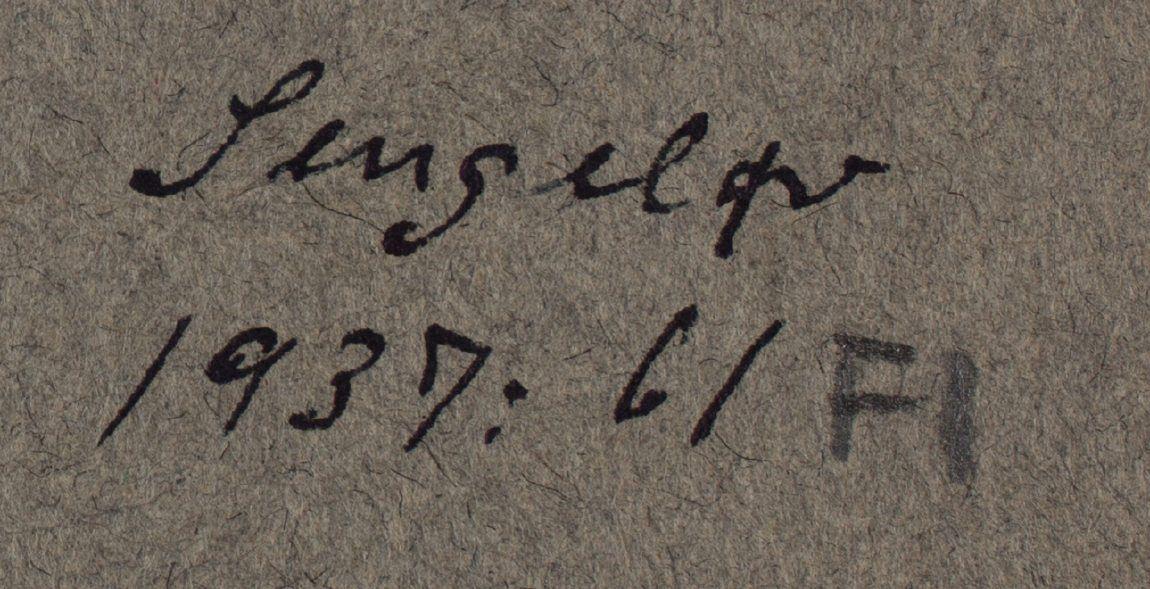 Sengeløv
1937: 61 F1